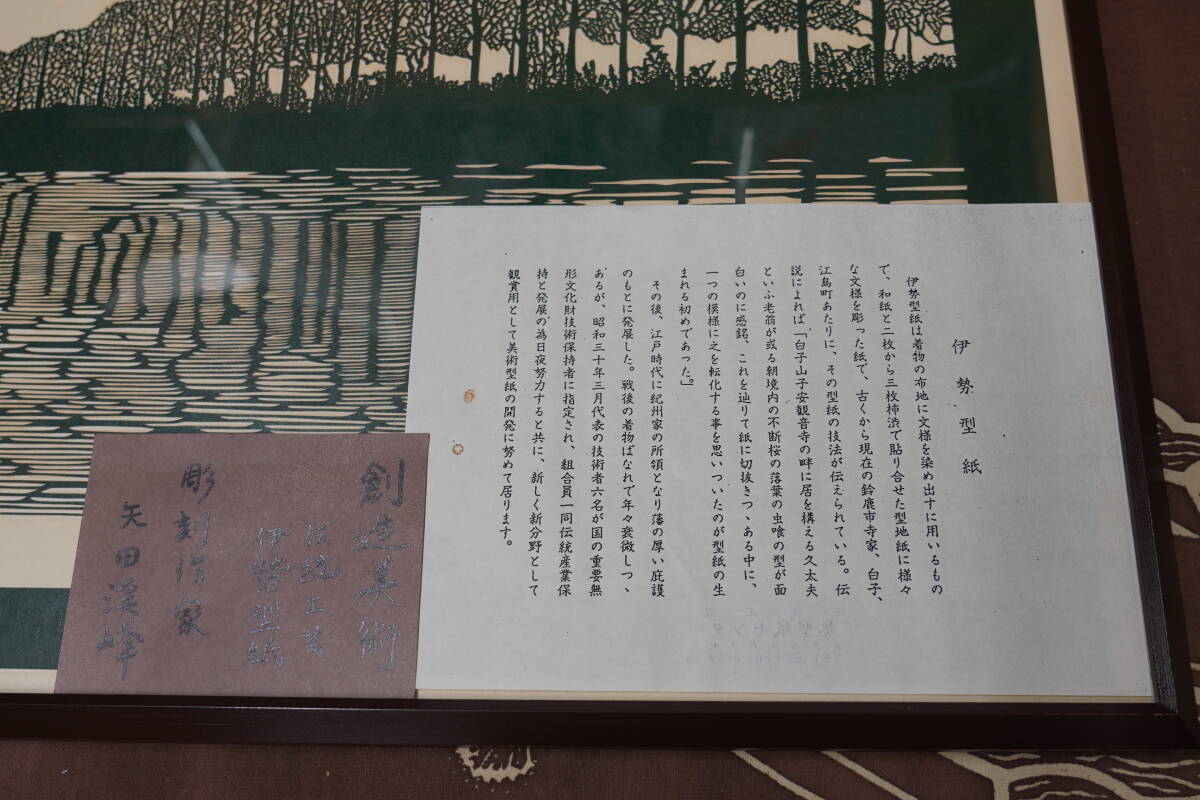 伊勢型紙
伊勢型紙は着物の布地に文様を染め出すに用いるもの
で、和紙と二枚から三枚柿渋で貼り合せた型地紙に様々
な文様を彫った紙で、古くから現在の鈴鹿市寺家、白子、
江島町あたりに、その型紙の技法が伝えられている。伝
説によれば「白子山子安観音寺の畔に居を構える久太夫
といふ老翁が或る朝境内の不断桜の落葉の虫喰の型が面
白いのに感銘、これを辿りて紙に切抜きつゝある中に、
一つの模様に之を転化する事を思いついたのが型紙の生
まれる初めであった。」
その後、江戸時代に紀州家の所領となり藩の厚い庇護
のもとに発展した。戦後の着物ばなれで年々衰微しつゝ
あるが、昭和三十年三月代表の技術者六名が国の重要無
形文化財技術保持者に指定され、組合員一同伝統産業保
持と発展の為日夜努力すると共に、新しく新分野として
観賞用として美術型紙の開発に努めて居ります。
創造美術
伝統工芸
伊勢型紙
彫刻作家
矢田渓峰